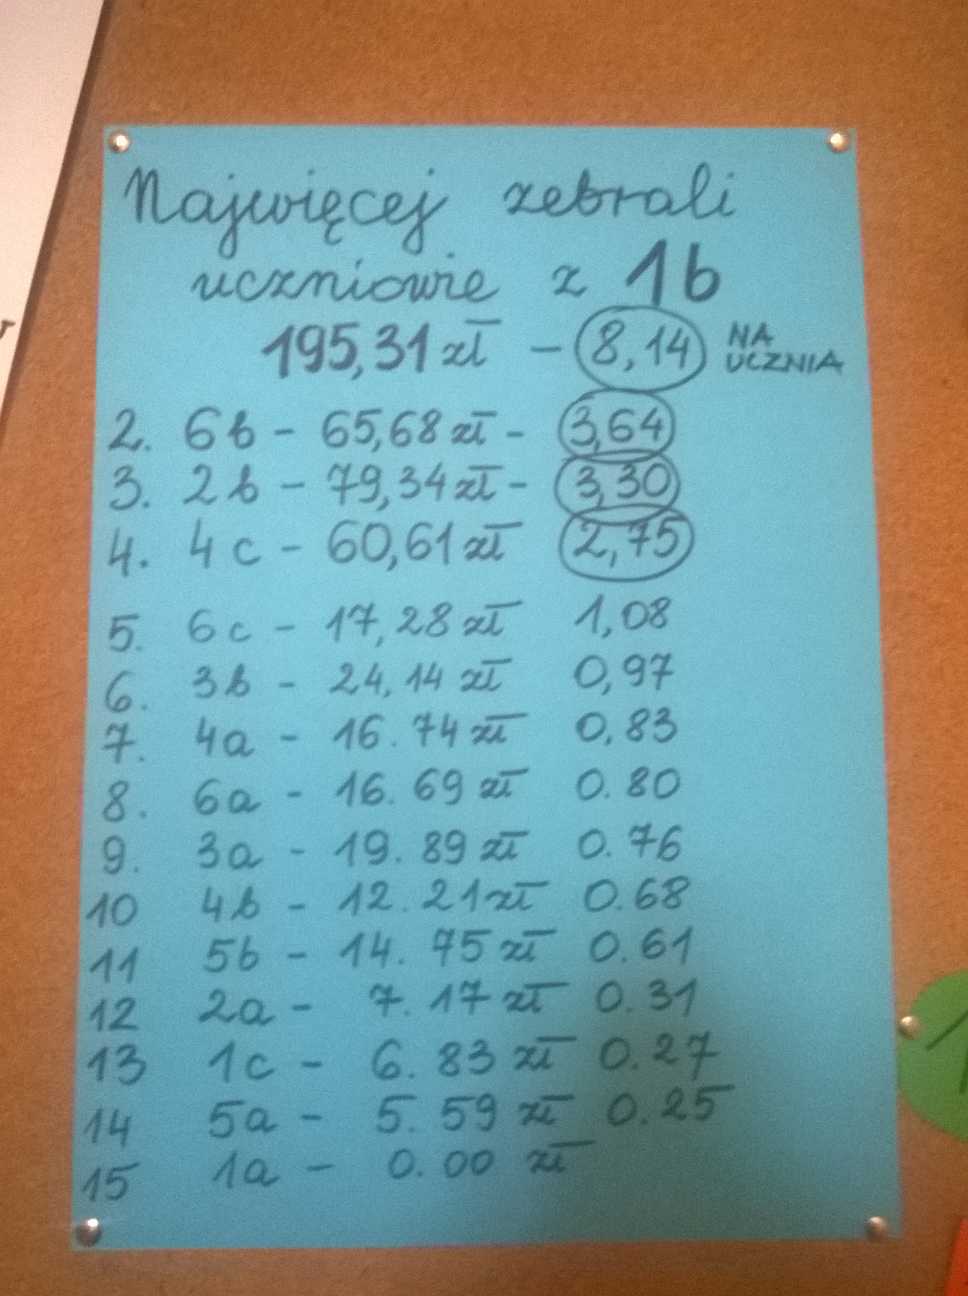 Najwięcej zebrali
uczniowie z 1b
195,31 zł - 8,14 NA UCZNIA
2. 6b - 65,68 zł - 3,64
3. 2b - 79,34 zł - 3,30
4. 4c - 60,61 zł 2,75
5. 6c - 17,28 zł 1,08
6. 3b - 24,14 zł 0,97
7. 4a - 16.74 zł 0,83
8. 6a - 16.69 zł 0.80
9. 3a - 19.89 zł 0.76
10 4b - 12.21 zł 0.68
11 5b - 14.75 zł 0.61
12 2a - 7.17 zł 0.31
13 1c - 6.83 zł 0.27
14 5a - 5.59 zł 0.25
15 1a - 0.00 zł